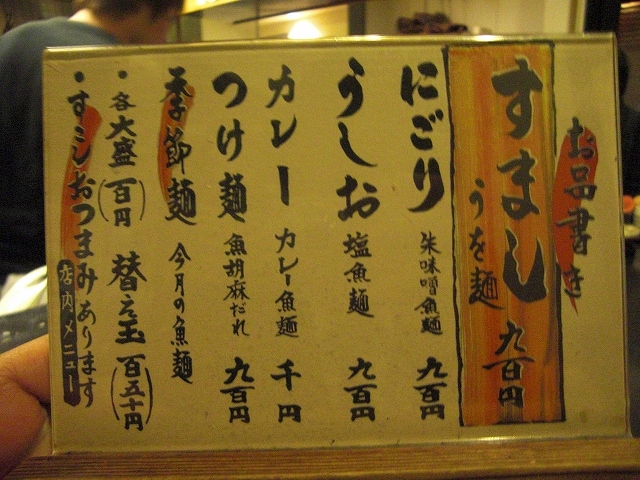 お品書き
すまし うを麺 九百円
にごり 朱味噌魚麺 九百円
うしお 塩魚麺 九百円
カレー カレー魚麺 千円
つけ麺 魚胡麻だれ 九百円
季節麺 今月の魚麺
・各大盛(百円) 替え玉(百五十円)
・すしおつまみあります
店内メニュー